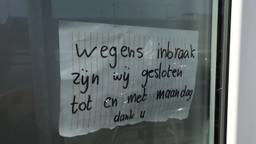 wegens inbraak
zijn wij gesloten
tot en met maandag
dank u